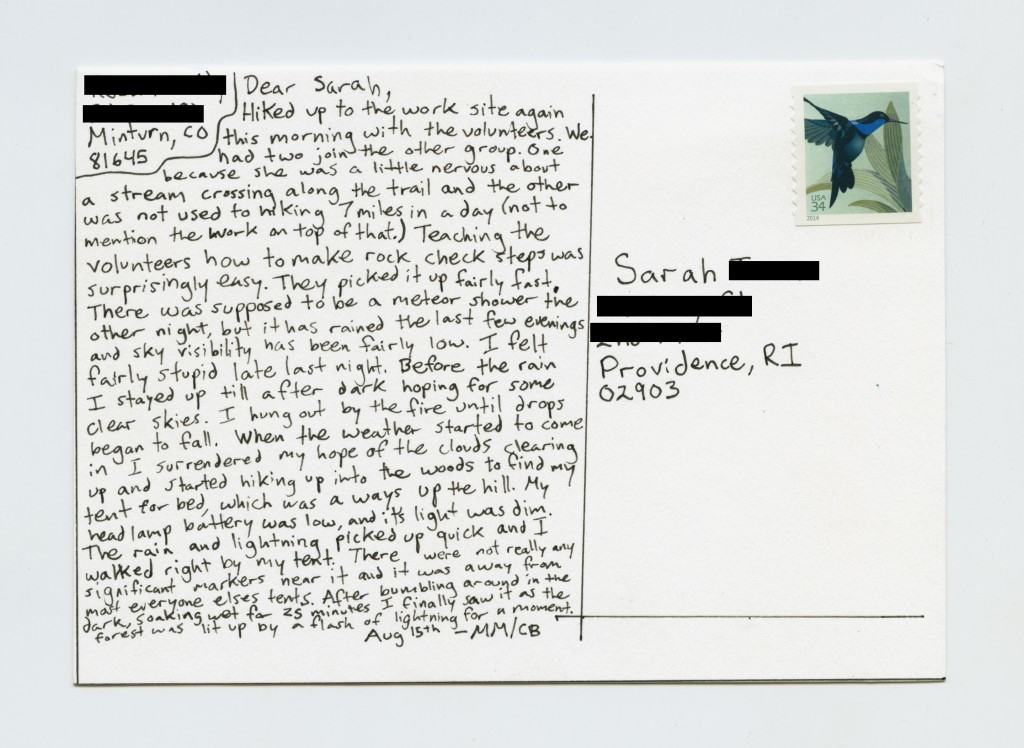 Minturn, CO
81645
Dear Sarah,
Hiked up to the work site again
this morning with the volunteers. We
had two join the other group. One
because she was a little nervous about
a stream crossing along the trail and the other
was not used to hiking 7 miles in a day (not to
mention the work on top of that.) Teaching the
volunteers how to make rock check steps was
surprisingly easy. They picked it up fairly fast.
There was supposed to be a meteor shower the
other night, but it has rained the last few evenings
and sky visibility has been fairly low. I felt
fairly stupid late last night. Before the rain
I stayed up till after dark hoping for some
clear skies. I hung out by the fire until drops
began to fall. When the weather started to come
in I surrendered my hope of the clouds clearing
up and started hiking up into the woods to find my
tent for bed, which was a ways up the hill. My
headlamp battery was low, and it's light was dim.
The rain and lightning picked up quick and I
walked right by my tent. There were not really any
significant markers near it and it was away from
most everyone elses tents. After bumbling around in the
dark, soaking wet for 25 minutes I finally saw it as the
forest was lit up by a flash of lightning for a moment.
Aug 15th - MM/CB
USA
34
2014
Sarah
Providence, RI
02903